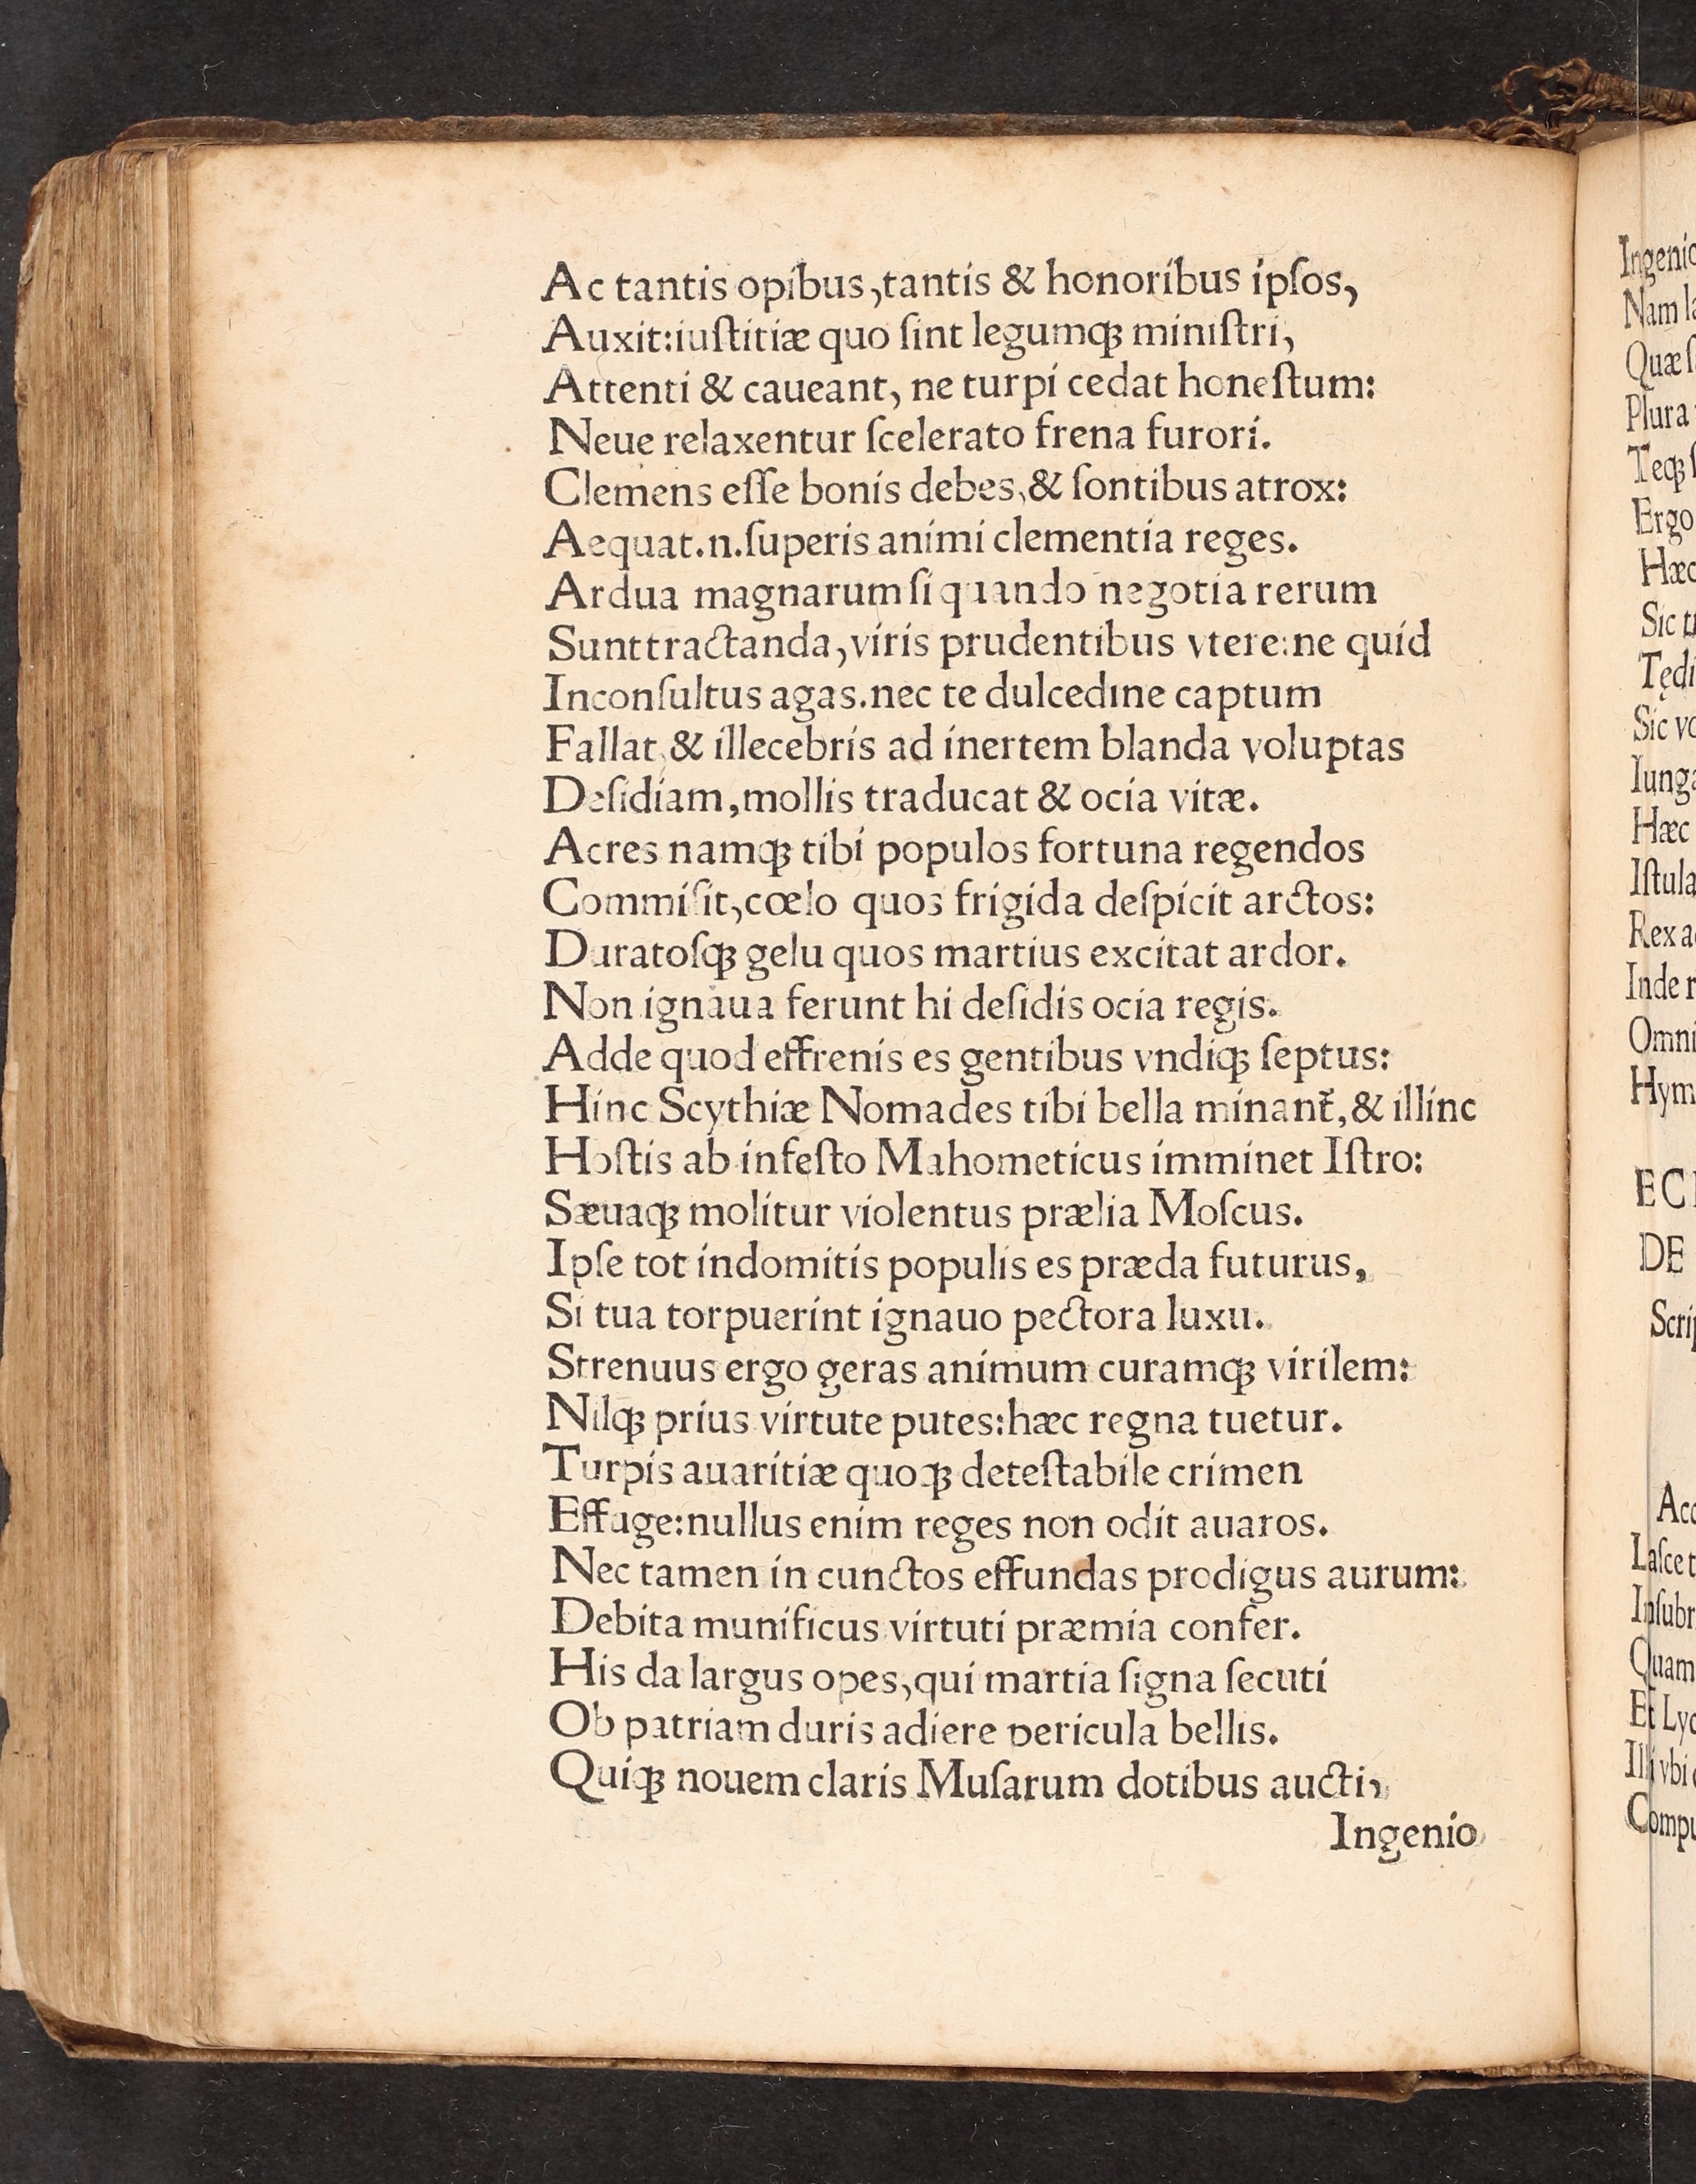 Ac tantis opibus,tantis & honoribus ipſos,
Auxit:iuſtitiæ quo ſint legumqꝫ miniſtri,
Attenti & caueant, ne turpi cedat honeſtum:
Neue relaxentur ſcelerato frena furori.
Clemens eſſe bonis debes,& ſontibus atrox:
Aequat.n.ſuperis animi clementia reges.
Ardua magnarum ſi quando negotia rerum
Sunt tractanda,viris prudentibus vtere:ne quid
Inconſultus agas.nec te dulcedine captum
Fallat,& illecebris ad inertem blanda voluptas
Deſidiam,mollis traducat & ocia vitæ.
Acres namqꝫ tibi populos fortuna regendos
Commiſit,cœlo quos frigida deſpicit arctos:
Duratoſqꝫ gelu quos martius excitat ardor.
Non ignaua ferunt hi deſidis ocia regis.
Adde quod effrenis es gentibus vndiqꝫ ſeptus:
Hinc Scythiæ Nomades tibi bella minant᷑,& illinc
Hoſtis ab infeſto Mahometicus imminet Iſtro:
Sæuaqꝫ molitur violentus prælia Moſcus.
Ipſe tot indomitis populis es præda futurus,
Si tua torpuerint ignauo pectora luxu.
Strenuus ergo geras animum curamqꝫ virilem:
Nilqꝫ prius virtute putes:hæc regna tuetur.
Turpis auaritiæ quoqꝫ deteſtabile crimen
Effuge:nullus enim reges non odit auaros.
Nec tamen in cunctos effundas prodigus aurum:
Debita munificus virtuti præmia confer.
His da largus opes,qui martia ſigna ſecuti
Ob patriam duris adiere pericula bellis.
Quiqꝫ nouem claris Muſarum dotibus aucti,
Ingenio
Plura
Teqꝫ
Ergo
Sic
Hæc
DE